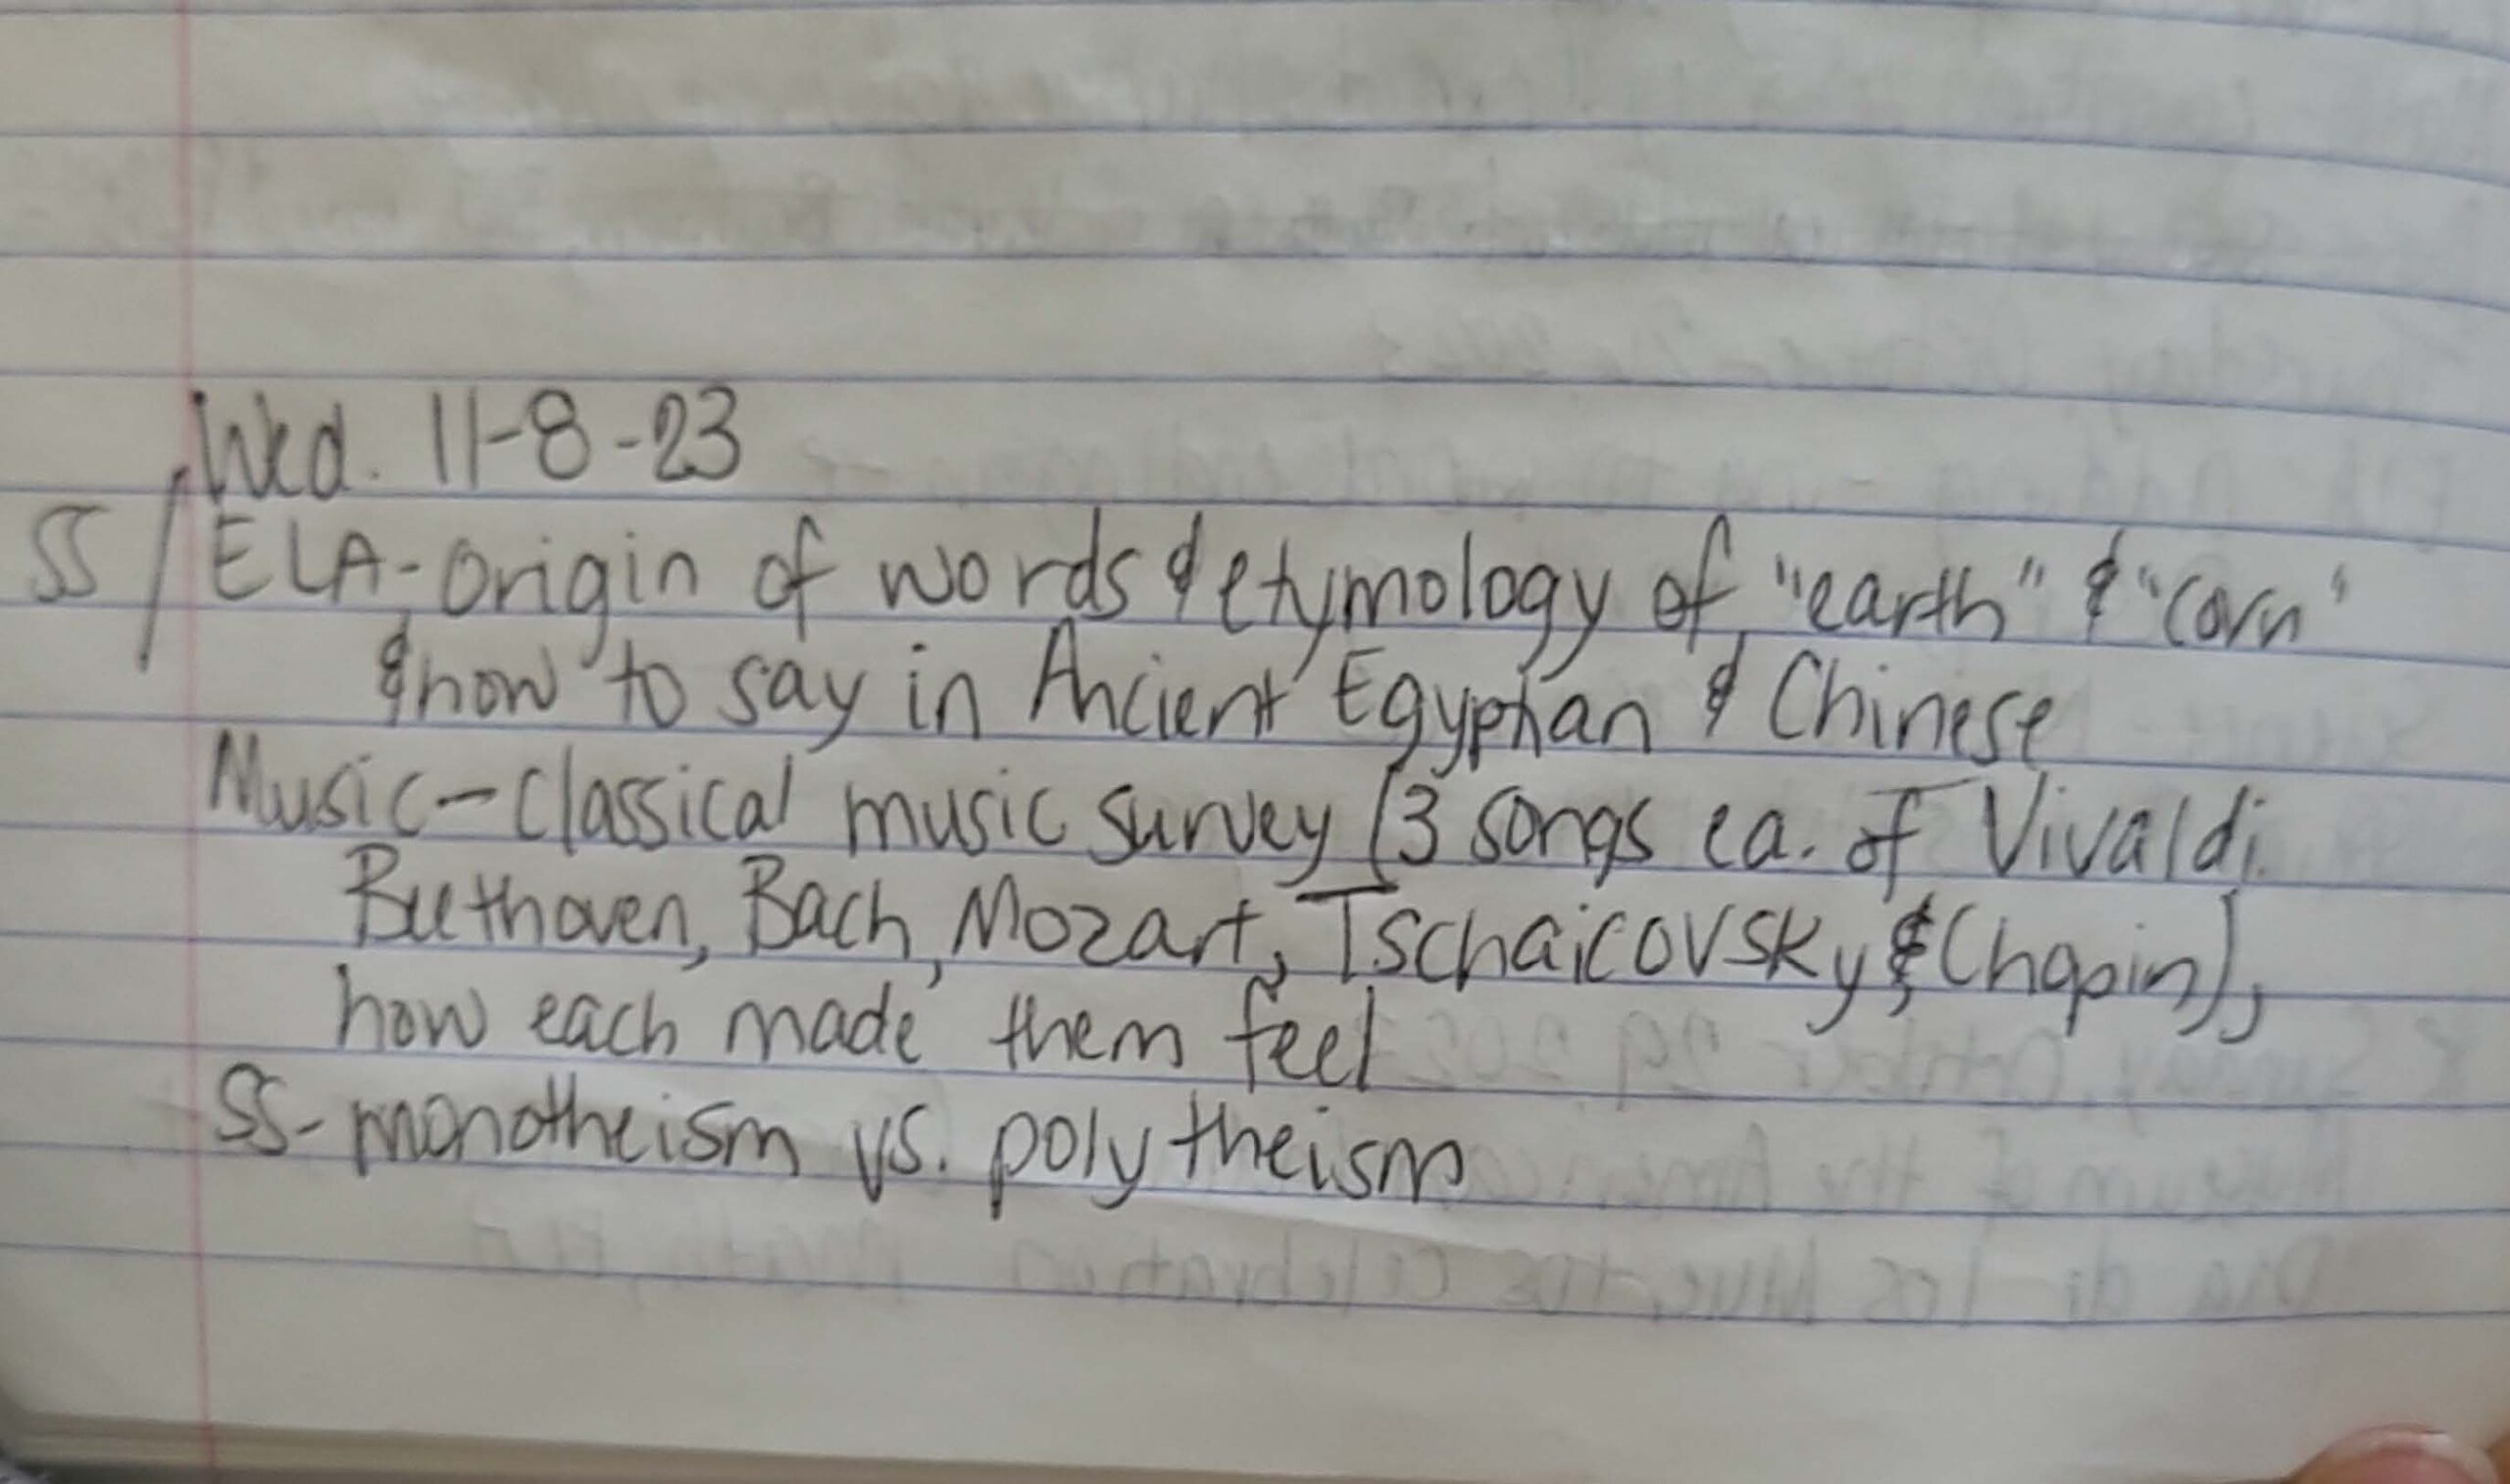 Wed. 11-8-23
SS / ELA-origin of words & etymology of "earth" & "corn"
& how to say in Ancient Egyptian & Chinese
Music-classical music survey (3 songs ea. of Vivaldi
Beethoven, Bach, Mozart, Tschaicovsky, & Chopin),
how each made them feel
SS-monotheism vs. polytheism